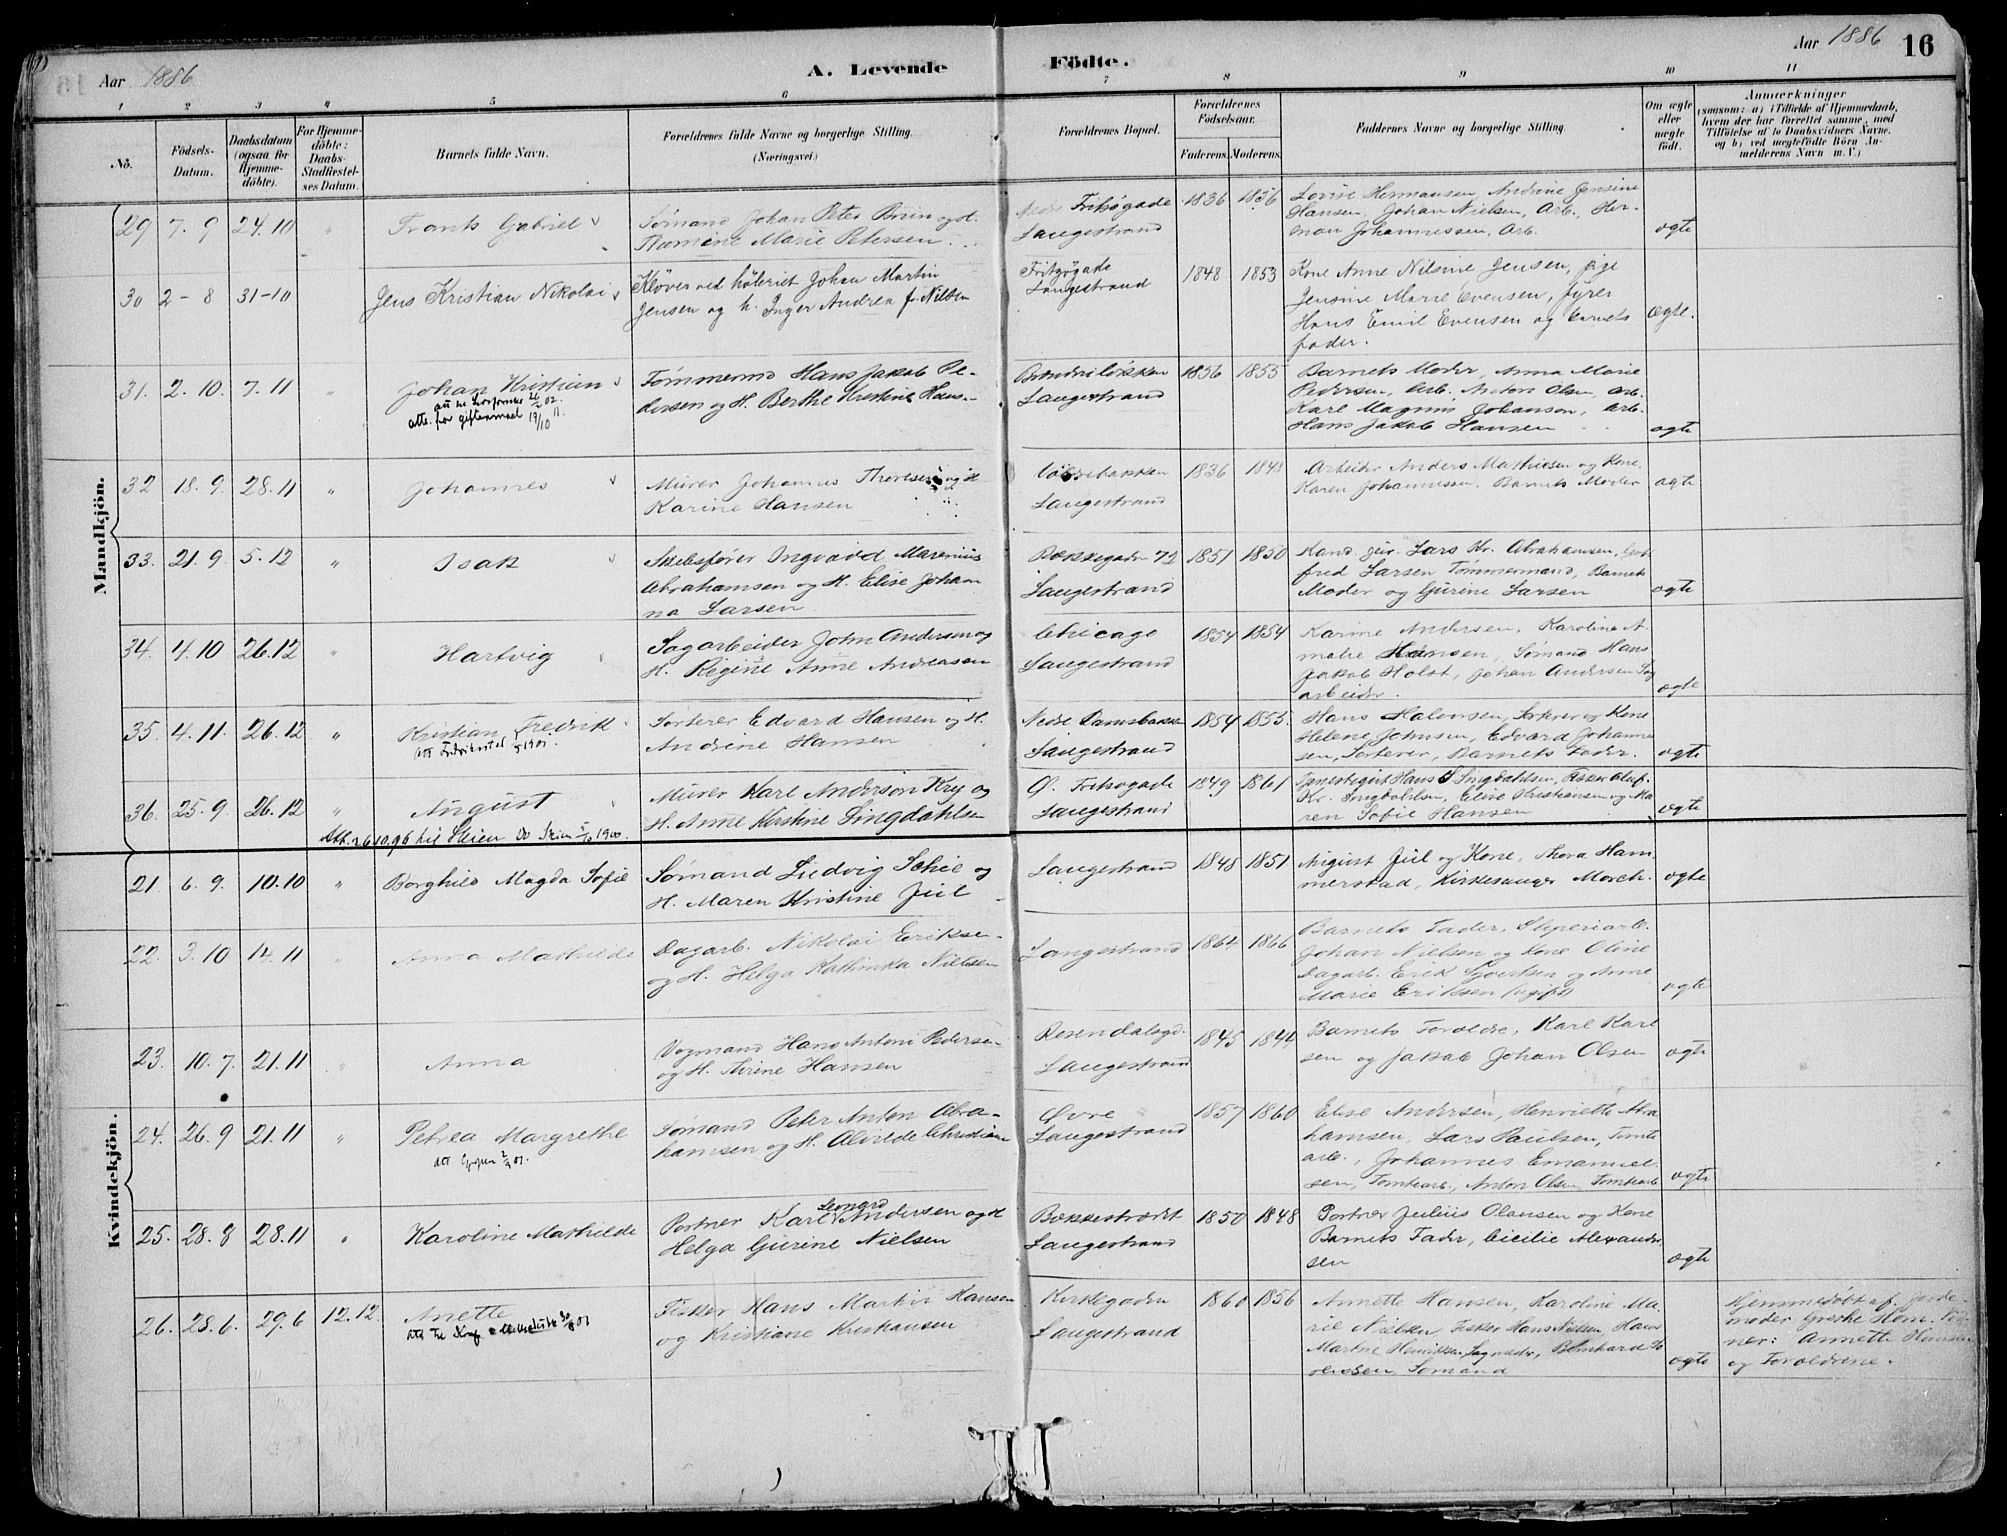 Aar 1886 A. Levende Födte. Aar 1886 16
1 2 3 4 5 6 7 8 9 10 11
No. Födsels-Datum. Daabsdatum (ogsaa for Hjemmedöbte). For Hjemmedöbte: Daabs-Stadfæstelses Datum. Barnets fulde Navn. Forældrenes fulde Navne og borgerlige Stilling. (Næringsvei.) Forældrenes Bopæl. Forældrenes Födselsaar. Faderens. Moderens. Faddernes Navne og borgerlige Stilling. Om ægte eller uægte født. Anmærkninger (saasom: a) i Tilfælde af Hjemmedaab, hvem der har forrettet samme, med Tilföielse af to Daabsvidners Navne, og b) ved uægtefödte Börn Anmelderens Navn m. V.)
Mandkjön.
29 7. 9 24. 10 " Frants Gabriel
Sømand Johan Peter Bruun og H.
Marie Petersen
Nedre Fritsøgade
Langestrand
1836 1856
Lovise Hermansen, Andrine Jensine
Hansen, Johan Nielsen, Arb., Her-
man Johannessen, Arb.
ægte
30 2 - 8 31-10 Jens Kristian Nikolai
Kløver ved høleriet Johan Martin
Jensen og h. Inger Andrea f. Nilsen
Fritzøgade
Langestrand
1848 1853
Kone Anne Nilsine Jensen, pige
Jensine Marie Evensen, fyrer
Hans Emil Evensen og barnets
fader.
ægte.
31. 2. 10. 7. 11 " Johan Kristian
att. for giftermaal 19/10 11.
Tømmermd Hans Jakob Pe-
dersen og H. Berthe Kristine Hans-
Langestrand
1856 1855
Barnets Moder, Anna Marie
Pedersen, Arb. Anton Olsen Arb.
Karl Magnus Johanson, Arb.
Hans Jakob Hansen
ægte
32 18. 9. 28. 11 " Johannes
Murer Johannes Thoresen og H
Karine Hansen
Langestrand
1836 1843
Arbeider Anders Mathisen og Kone,
Karen Johannessen, Barnets Moder
ægte
33. 21. 9. 5. 12 " Isak
Skibsfører Ingvald Marenius
Abrahamsen og H. Elise Johan
na Larsen
Bækkegaden 72
Langestrand
1851 1850
Kand. jur. Lars Kr. Abrahamsen,
fred Larsen Tømmermand, Barnets
Moder og Gurine Larsen
ægte
34. 4. 10 26. 12 " Hartvig
Sagarbeider John Andersen og
H. Regine Anne Andreassen
Chicago
Langestrand
1854 1854
Karine Andersen, Karoline A-
malie Hansen, Sømand Hans
Jakob Holst, Johan Andersen Sag
arbeider.
ægte
35. 4. 11. 26. 12 " Kristian Fredrik
Att. Fredrikstad 1901.
Sorterer Edvard Hansen og H.
Andrine Hansen
Nedre Damsbakke
Langestrand
1854 1855.
Hans Halvorsen, Sorterer og Kone
Helene Johnsen, Edvard Johanne
sen, Sorterer, Barnets Fader.
ægte
36. 25. 9. 26. 12 " August
Att. 26.10.96 til Skien Do Skien 1900.
Murer Karl Anderson Kry og
H. Anne Kirstine Lingdahlsen
Ø. Fritsøgade
Langestrand
1849 1861
Tjenestegut Hans Lingdahlsen, Fisker Oluf
Kr. Lingdahlsen, Elise Kristiansen og Ma
ren Sofie Hansen
ægte
Kvindekjön.
21. 6. 9. 10. 10 " Borghild Magda Sofie
Sømand Ludvig Schie og
H. Maren Kristine Juel
Langestrand
1848 1851
August Juel og Kone, Thora Ham-
merstad, Kirkesanger Morch.
ægte
22. 3. 10 14. 11 " Anna Mathilde
Dagarb. Nikolai Eriksen
og H. Helga Kathinka Nielsen
Langestrand
1864 1866
Barnets Fader, Sliperiarb.
Johan Nielsen og Kone Oline
Dagarb. Erik Sjvertsen og Anne
Marie Eriksen (ugift)
ægte
23. 10. 7. 21. 11 " Anna
Vogmand Hans Anton Pedersen
og H. Hansen
Langestrand
1845 1844
Barnets Forældre, Karl Karl
sen og Jakob Johan Olsen
ægte
24. 26. 9 21. 11 " Petrea Margrethe
Sømand Peter Anton Abra-
hamsen og H. Alvilde Christian
Øvre
Langestrand
1857 1860
Elise Andersen, Henriette Abra
hamsen, Lars Paulsen, Tomte
arb., Johannes Emanuel-
sen, Tomtearb., Anton Olsen, Tomtearb
ægte
25. 28. 8 28. 11 " Karoline Mathilde
Leonard
Portner Karl Andersen og H
Helga Gurine Nielsen
Bækkestrædet
Langestrand
1850 1848
Portner Julius Olausen og Kone
Barnets Fader, Cicilie Alexander
sen
ægte
26. 28. 6. 29. 6 12. 12. Anette
Fisker Hans Martin Hansen
og Kristiane Kristiansen
Kirkegaden
Langestrand
1860 1856
Annette Hansen, Karoline Ma-
rie Nielsen, Fisker Hans Nielsen, Hans
Martin Henriksen, Bernhard
Sømand
ægte
Hjemmedøbt af Jorde-
moder Grethe Hem. Vid
ner: Annette Hansen
og Forældrene.